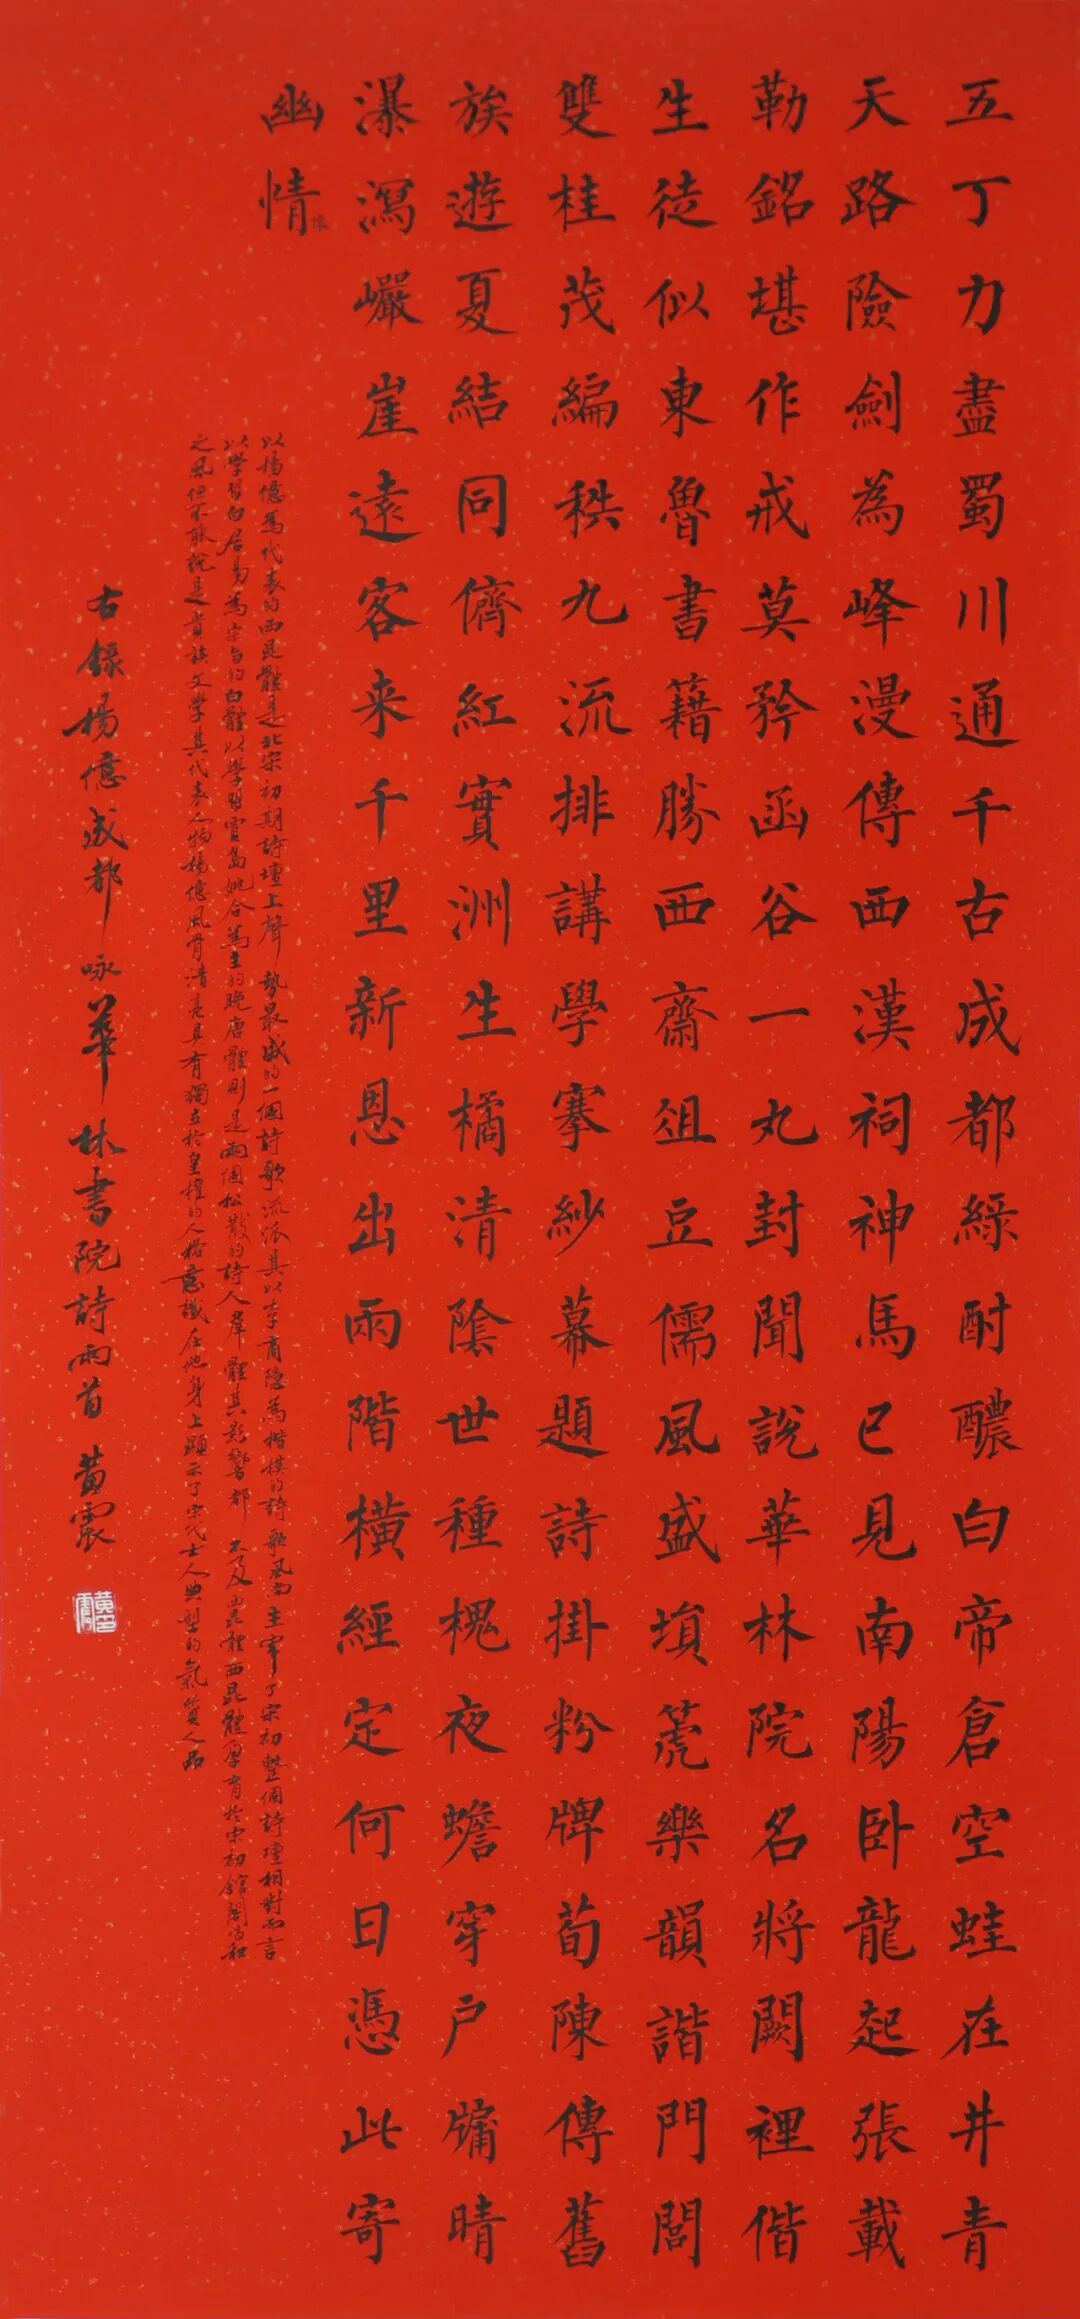 五丁力盡蜀川通千古成都綠酎醲白帝倉空蛙在井青
天路險劍為峰漫傳西漢祠神馬已見南陽卧龍起張載
勒銘堪作戒莫矜函谷一丸封聞說華林院名將闕裡偕
生徒似東魯書籍勝西齋俎豆儒風盛塤箎樂韻諧門閭
雙桂茂編秩九流排講學搴紗幕題詩掛粉牌荀陳傳舊
族遊夏結同儕紅實洲生橘清陰世種槐夜蟾穿戶牖晴
瀑瀉巘崖遠客来千里新恩出兩階橫經定何日憑此寄
幽情
懷
以楊億為代表的西昆體是北宋初期詩壇上聲勢最盛的一個詩歌流派其以李商隱為楷模的詩歌風尚主宰了宋初整個詩壇相對而言
以學習白居易為宗旨的白體以學習賈島姚合為主的晚唐體則是兩個松散的詩人群體其影響都不及西昆體西昆體孕育於宋初館閣唱和
之風但不能說是貴族文學其代表人物楊億風骨清亮具有獨立於皇權的人格意識在他身上顯示了宋代士人典型的氣質人品
右錄楊億成都咏華林書院詩兩首黃震